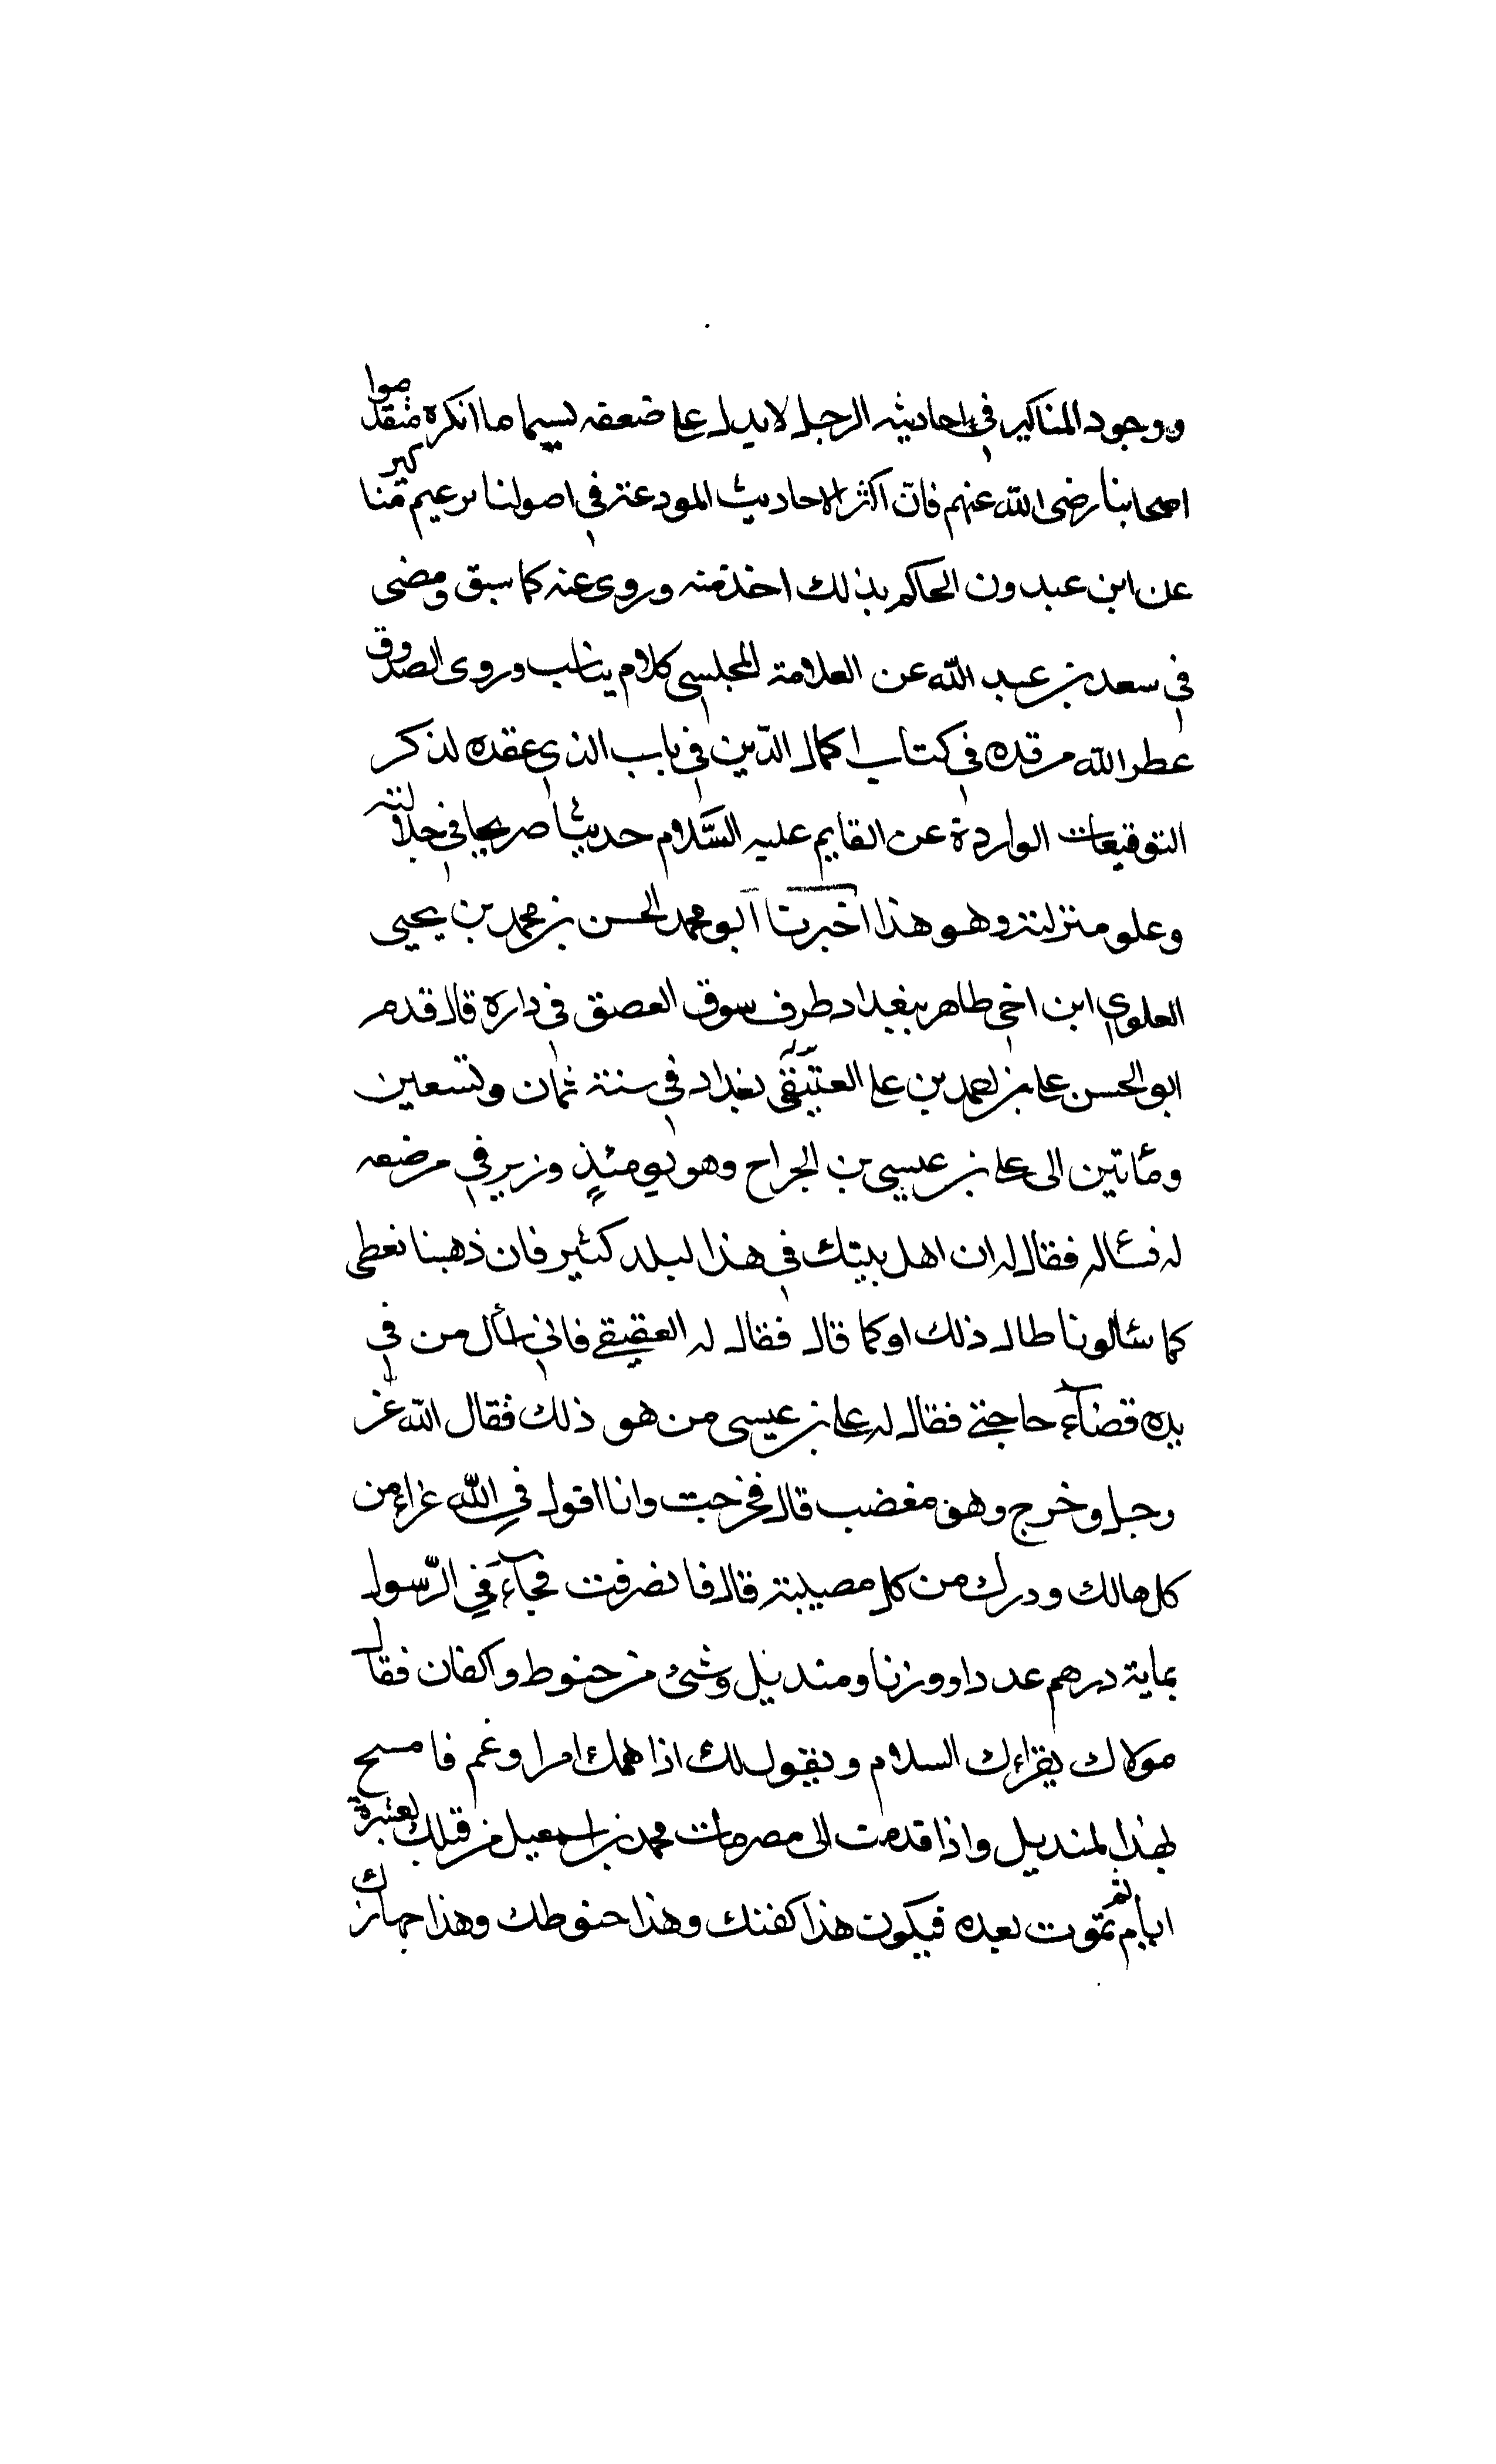 ووجود المناكير في احاديثه الرجل لا يدل على ضعفه لاسيما ما انكره متقدموا
اصحابنا رضى الله عنهم فانّ اكثر الاحاديث المودعة في اصولنا بزعمهم مناكير
عن ابن عبدون الحاكم بذلك اخذ منه وروى عنه كما سبق ومضى
في سعد بن عبد الله عن العلامة المجلسي كلام يناسب وروى الصدوق
عطر الله مرقده في كتاب اكمال الدّين في باب الذي عقده لذكر
التوقيعات الواردة عن القايم عليه السَّلام حديثا صريحا في جلالته
وعلو منزلته وهو هذا اخبرنا ابو محمد الحسن بن محمد بن يحيى
العلوي ابن اخي طاهر ببغداد طرف سوق العصق في داره قال قدم
ابو الحسن على بن احمد بن على العقيقي بغداد في سنة ثمان وتسعين
ومأتين الى على بن عيسى بن الجراح وهو يومئذٍ وزير في مرضعه
له فسئاله فقال له ان اهل بيتك في هذا البلد كثير فان ذهبنا نعطى
كما سئالونا طال ذلك او كما قال فقال له العقيقي فاني اسأل من في
يده قضاء حاجتي فقال له على بن عيسى من هو ذلك فقال الله عز
وجل وخرج وهو مغضب قال فخرجت وانا اقول في الله عزاء من
كل هالك ودرك من كل مصيبة قال فانصرفت فجاءني الرّسول
بماية درهم عددا ووزنا ومنديل وشئ من حنوط واكفان فقال
مولاك يقراءك السلام ويقول لك اذا همك امر او غم فامسح
بهذا المنديل واذا قدمت الى مصر مات محمد بن اسمعيل من قبلك بعشرة
ايام ثم تموت بعده فيكون هذا كفنك وهذا حنوطك وهذا جهازك